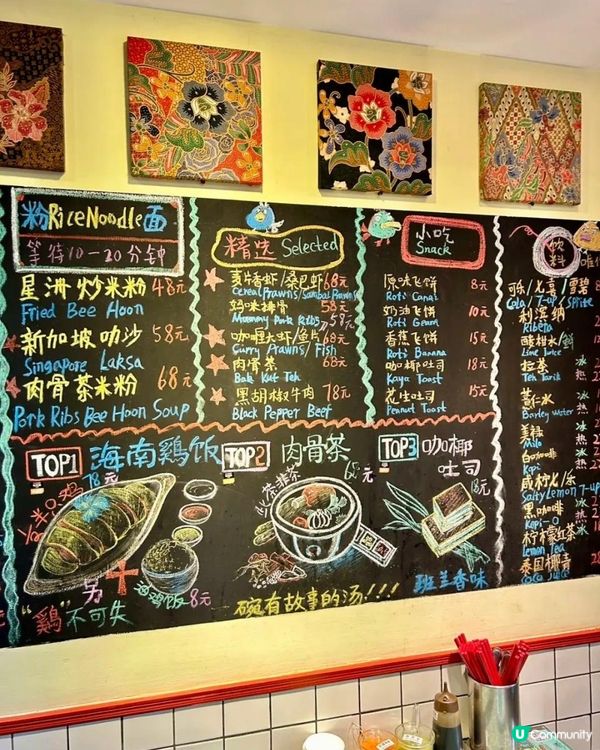 粉RiceNoodle面
等待10-20分钟
星洲炒米粉 48元
Fried Bee Hoon
新加坡叻沙 58元
Singapore Laksa
肉骨茶米粉 68元
Pork Ribs Bee Hoon Soup
精选 Selected
麦片香虾/桑巴虾 68元
Cereal Prawns/Sambal Prawns
妈咪排骨 58元
Mummy Pork Ribs
咖喱大虾/鱼片 68元
Curry Prawns/Fish
肉骨茶 68元
Bak Kut Teh
黑胡椒牛肉 78元
Black Pepper Beef
小吃
Snack
原味飞饼 8元
Roti Canai
奶油飞饼 10元
Roti Geum
香蕉飞饼 15元
Roti Banana
咖椰吐司 18元
Kaya Toast
花生吐司 15元
Peanut Toast
饮料
可乐/七喜/雪碧
Cola/7-up/Sprite
利滨纳
Ribena
酸柑水
Lime Juice
拉茶 冰
Teh Tarik 热
薏仁水 冰
Barley Water 热
美禄 冰
Milo 热
白咖啡 冰
Kopi 热
咸柠七/乐
Salty Lemon 7-up
黑咖啡 冰
Kopi-O 热
柠檬红茶 冰
Lemon Tea 热
泰国椰青
Coco Juice
TOP1 海南鸡饭
半只鸡 78元
另+油鸡饭 8元
"鷄"不可失
TOP2 肉骨茶
68元
碗有故事的汤!!!
TOP3 咖椰
吐司
18元
班兰香味
U Community